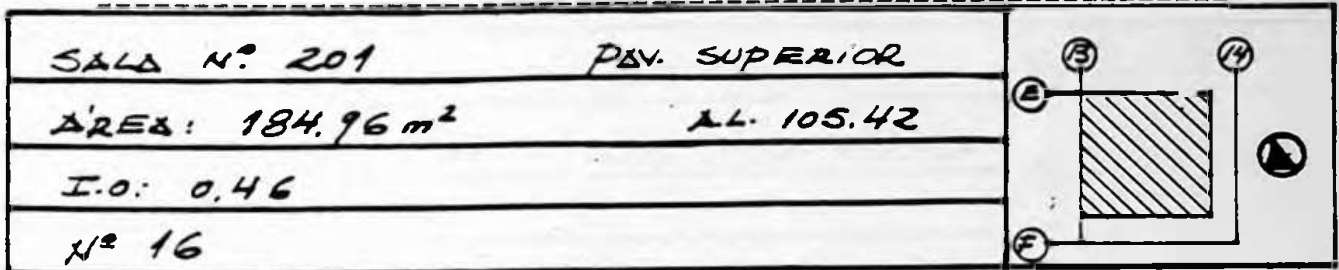 SALA Nº 201 PAV. SUPERIOR
ÁREA: 184.96 m² AL. 105.42
I.O: 0.46
Nº 16
13 14
E
F